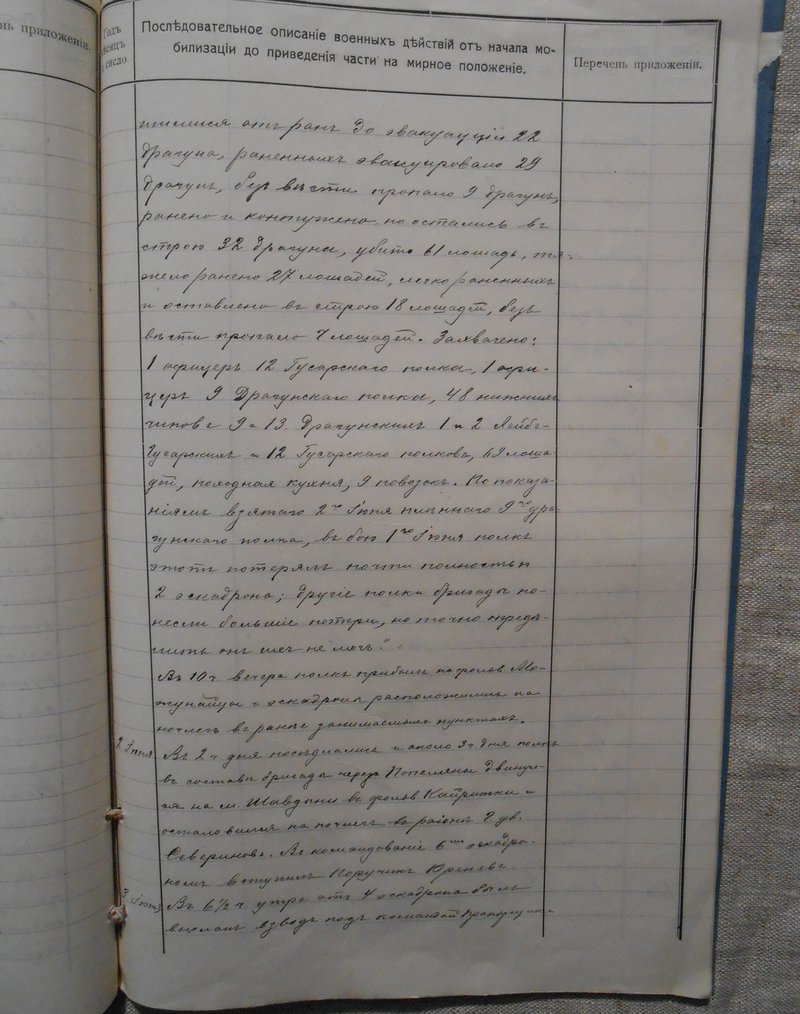 нь приложеній.
Годъ
мѣсяцъ
и число
Послѣдовательное описаніе военныхъ дѣйствій отъ начала мо-
билизаціи до приведенія части на мирное положеніе.
Перечень приложеній.
отъ ранъ до эвакуаціи 22
драгуна, раненныхъ эвакуировало 29
драгунъ, безъ вѣсти пропало 9 драгунъ,
ранено и контужено но остались въ
строю 32 драгуна, убито 61 лошадь, тя-
жело ранено 27 лошадей, легко раненныхъ
и оставлено въ строю 18 лошадей, безъ
вѣсти пропало 4 лошадей. Захвачено:
1 офицеръ 12 Гусарскаго полка, 1 офи-
церъ 9 Драгунскаго полка, 48 нижнихъ
чиновъ 9 и 13 Драгунскихъ 1 и 2 Лейбъ-
Гусарскихъ и 12 Гусарскаго полковъ, 69 лоша-
дей, походная кухня, 9 повозокъ. По показа-
ніямъ взятаго 2го Іюня плѣннаго 9го дра-
гунскаго полка, въ бою 1го Іюня полкъ
этотъ потерялъ почти полностью
2 эскадрона; другіе полки бригады по-
несли большіе потери, но точно опредѣ-
лить онъ ихъ не могъ."
Въ 10 ч. вечера полкъ прибылъ на фольв. Мо-
и эскадроны расположились на
ночлегъ въ ранѣе занимаемыхъ пунктахъ.
2 Іюня
Въ 2 ч. дня посѣдлались и около 3 ч. дня полкъ
въ составѣ бригады черезъ Попеляны двинул-
ся на м. Шавдыни въ фольв. Кайришки и
остановился на ночлегъ въ районѣ г. дв.
Севериновъ. Въ командованіе 6мъ эскадро-
номъ вступилъ Поручикъ Юреневъ
3 Іюня
Въ 6½ ч. утра отъ 4 эскадрона былъ
высланъ взводъ подъ командой Прапорщика